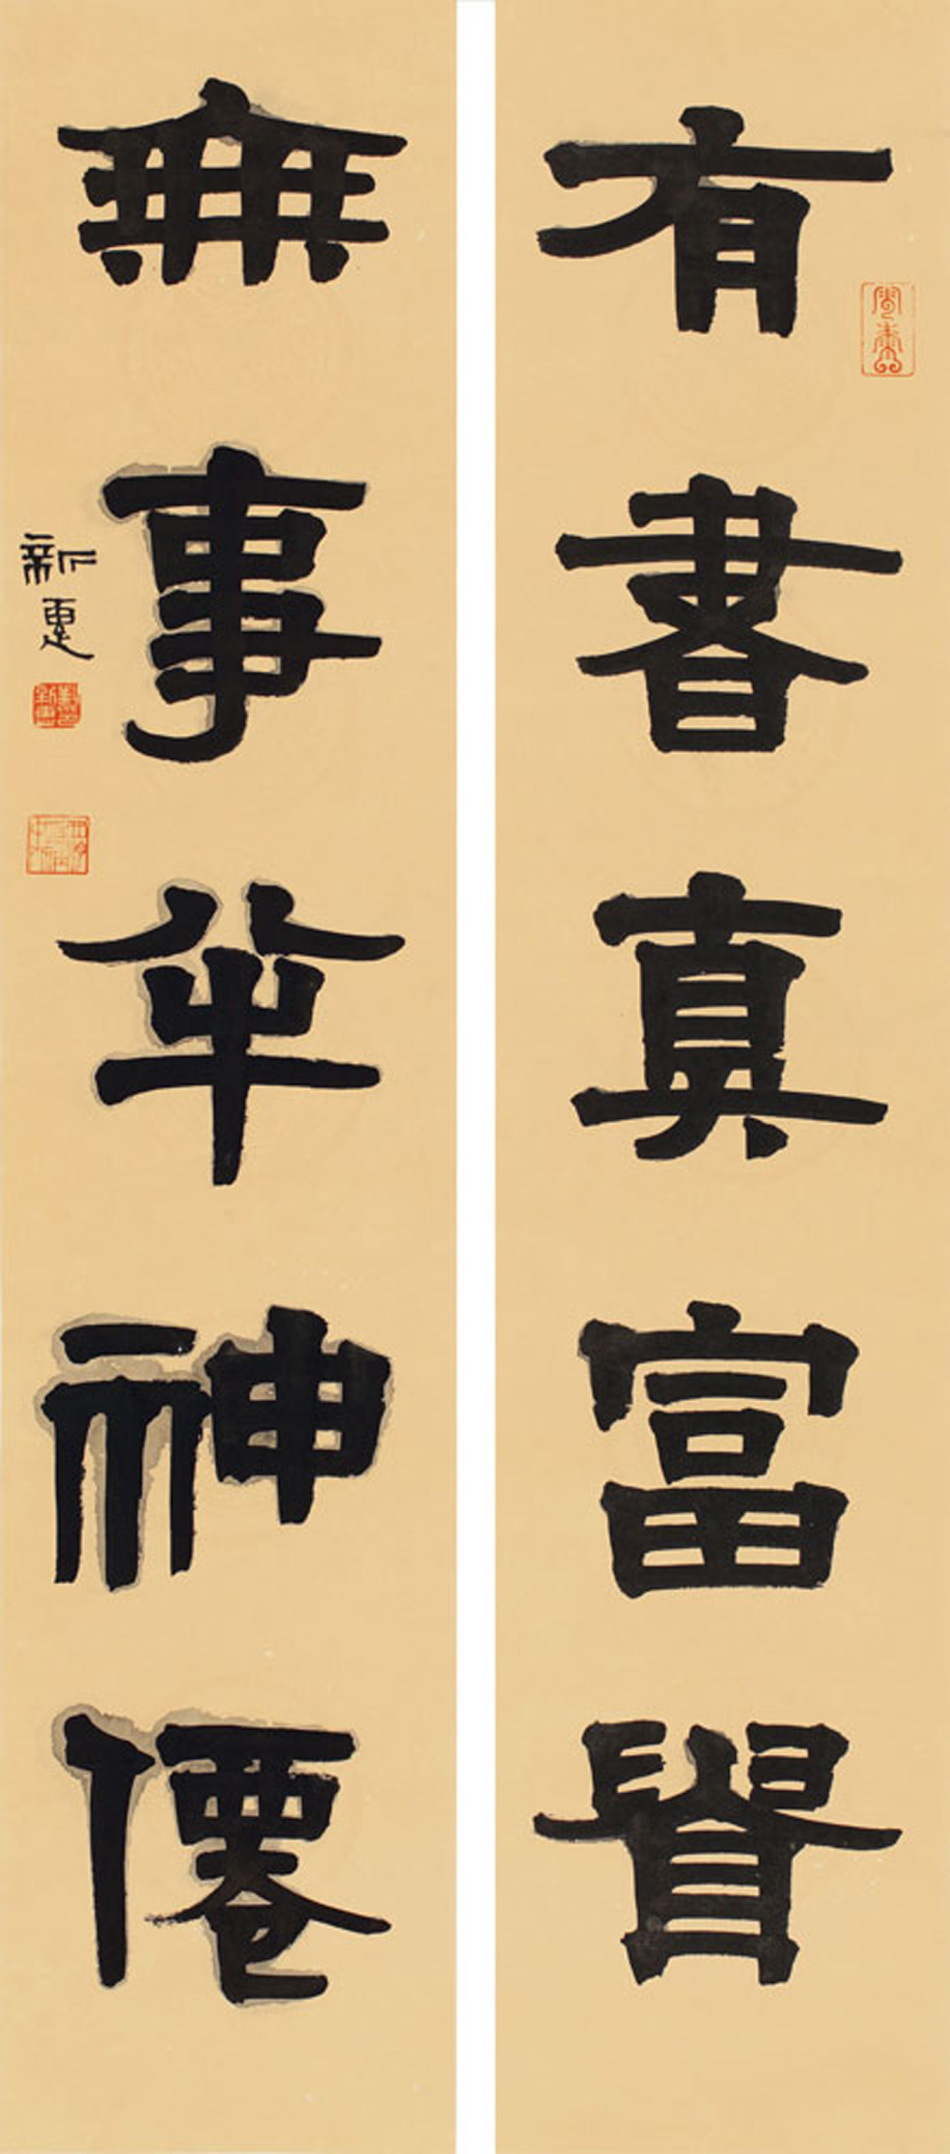 有書真富貴
無事半神僊
新